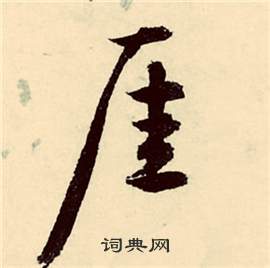 厓
词典网